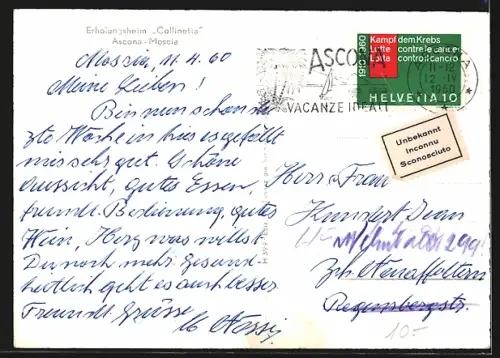 Erholungsheim „Collinetta"
Ascona - Moscia
Moscia, 11.4.60
Meine Lieben!
Bin nun schon die
2te Woche im hies es gefällt
mir sehr gut. Schöne
Aussicht, gutes Essen,
freundl. Bedienung, gutes
Wein, Herz was willst
Du noch mehr. Gesund-
heitlich geht es auch besser
Freundl. Grüsse
ASCONA
VACANZE IDEALI
11-12
12. IV
1960
1910-1960
Kampf dem Krebs
Lutte contre le cancer
Lotta contro il cancro
HELVETIA 10
Unbekannt
Inconnu
Sconosciuto
Herr u Frau
Zch. Neuaffoltern
Regensbergstr.
10.-